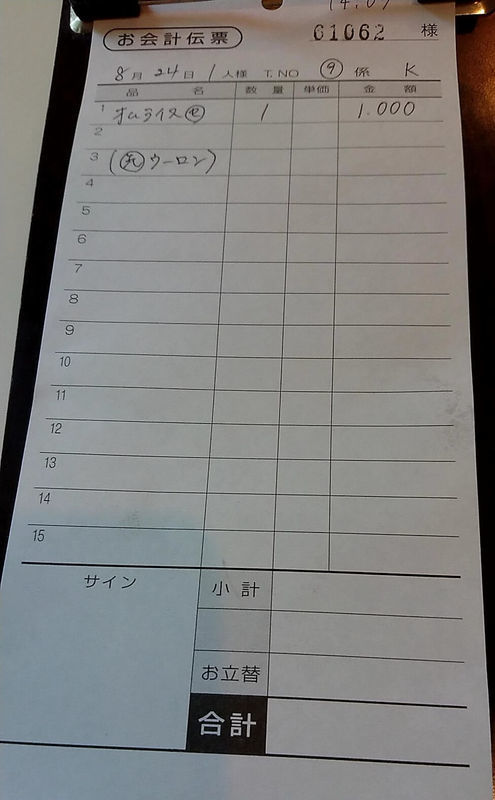 お会計伝票 61062 様
8月24日 1人様 T.NO ⑨ 係 K
品 名 数 量 単価 金 額
1 オムライス㋝ 1 1.000
2
3 (ウーロン)
4
5
6
7
8
9
10
11
12
13
14
15
サイン
小 計
お立替
合計